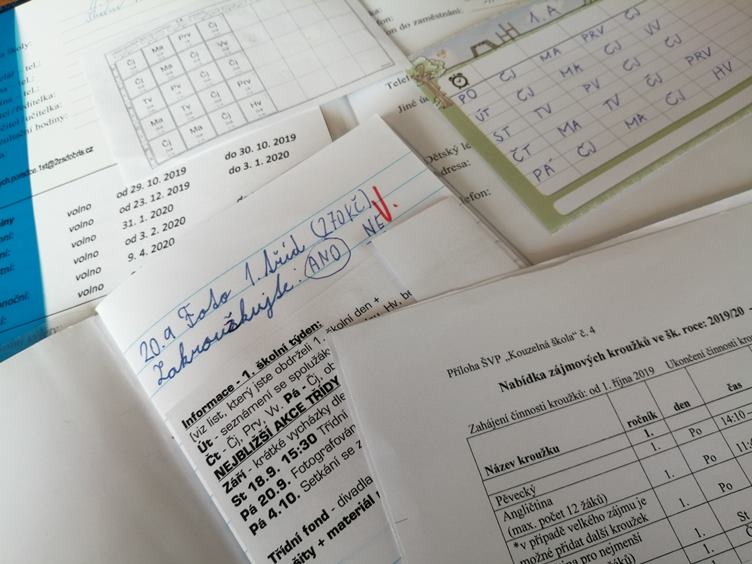 Čj Ma Prv Čj
Čj Ma Čj Vv
Tv Prv Čj Prv
Čj Ma Tv Čj
Čj Ma Čj Hv
on do zaměstnání:
1. A
PO ČJ MA PRV ČJ
ÚT ČJ MA ČJ VV
ST TV PV ČJ PRV
ČT MA TV ČJ
PÁ ČJ MA ČJ HV
volno od 29. 10. 2019 do 30. 10. 2019
volno od 23. 12. 2019 do 3. 1. 2020
volno 31. 1. 2020
volno od 3. 2. 2020
volno 9. 4. 2020
20.9 Foto 1. tříd (270 Kč)
Zakroužkujte: ANO NE
Informace - 1. školní týden:
(viz list, který jste obdrželi 1. školní den +
Út - seznámení se spolužák
Čt - Čj, Prv, Vv, Pá - Čj, ob
NEJBLIŽŠÍ AKCE TŘÍDY
Září - krátké vycházky dle
St 18.9. 15:30 Třídní
Pá 20.9. Fotografován
Pá 4.10. Setkání se z
Třídní fond - divadla
šity + materiál
Příloha ŠVP „Kouzelná škola" č. 4
Nabídka zájmových kroužků ve šk. roce: 2019/20
Zahájení činnosti kroužků: od 1. října 2019 Ukončení činnosti kro
Název kroužku ročník den čas
Pěvecký 1. Po 14:10
Angličtina 1. Po
(max. počet 12 žáků)
*v případě velkého zájmu je
možné přidat další kroužek
ina pro nejmenší